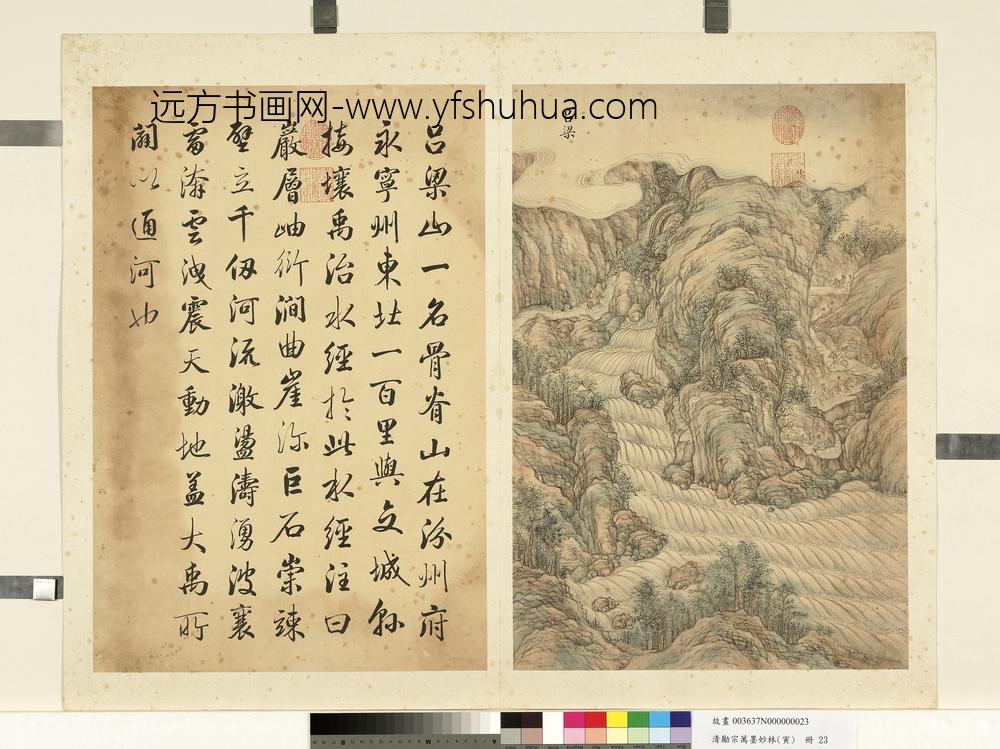 远方书画网-www.yfshuhua.com
呂梁
呂梁山一名骨脊山在汾州府
永寧州東北一百里與文城縣
接壤禹治水經於此水經注曰
巖層岫衍澗曲崖深巨石崇竦
壁立千仞河流激盪濤湧波襄
雷渀雲洩震天動地蓋大禹所
闢以通河也
故畫 003637N000000023
清勵宗萬墨妙珠林(寅) 冊 23